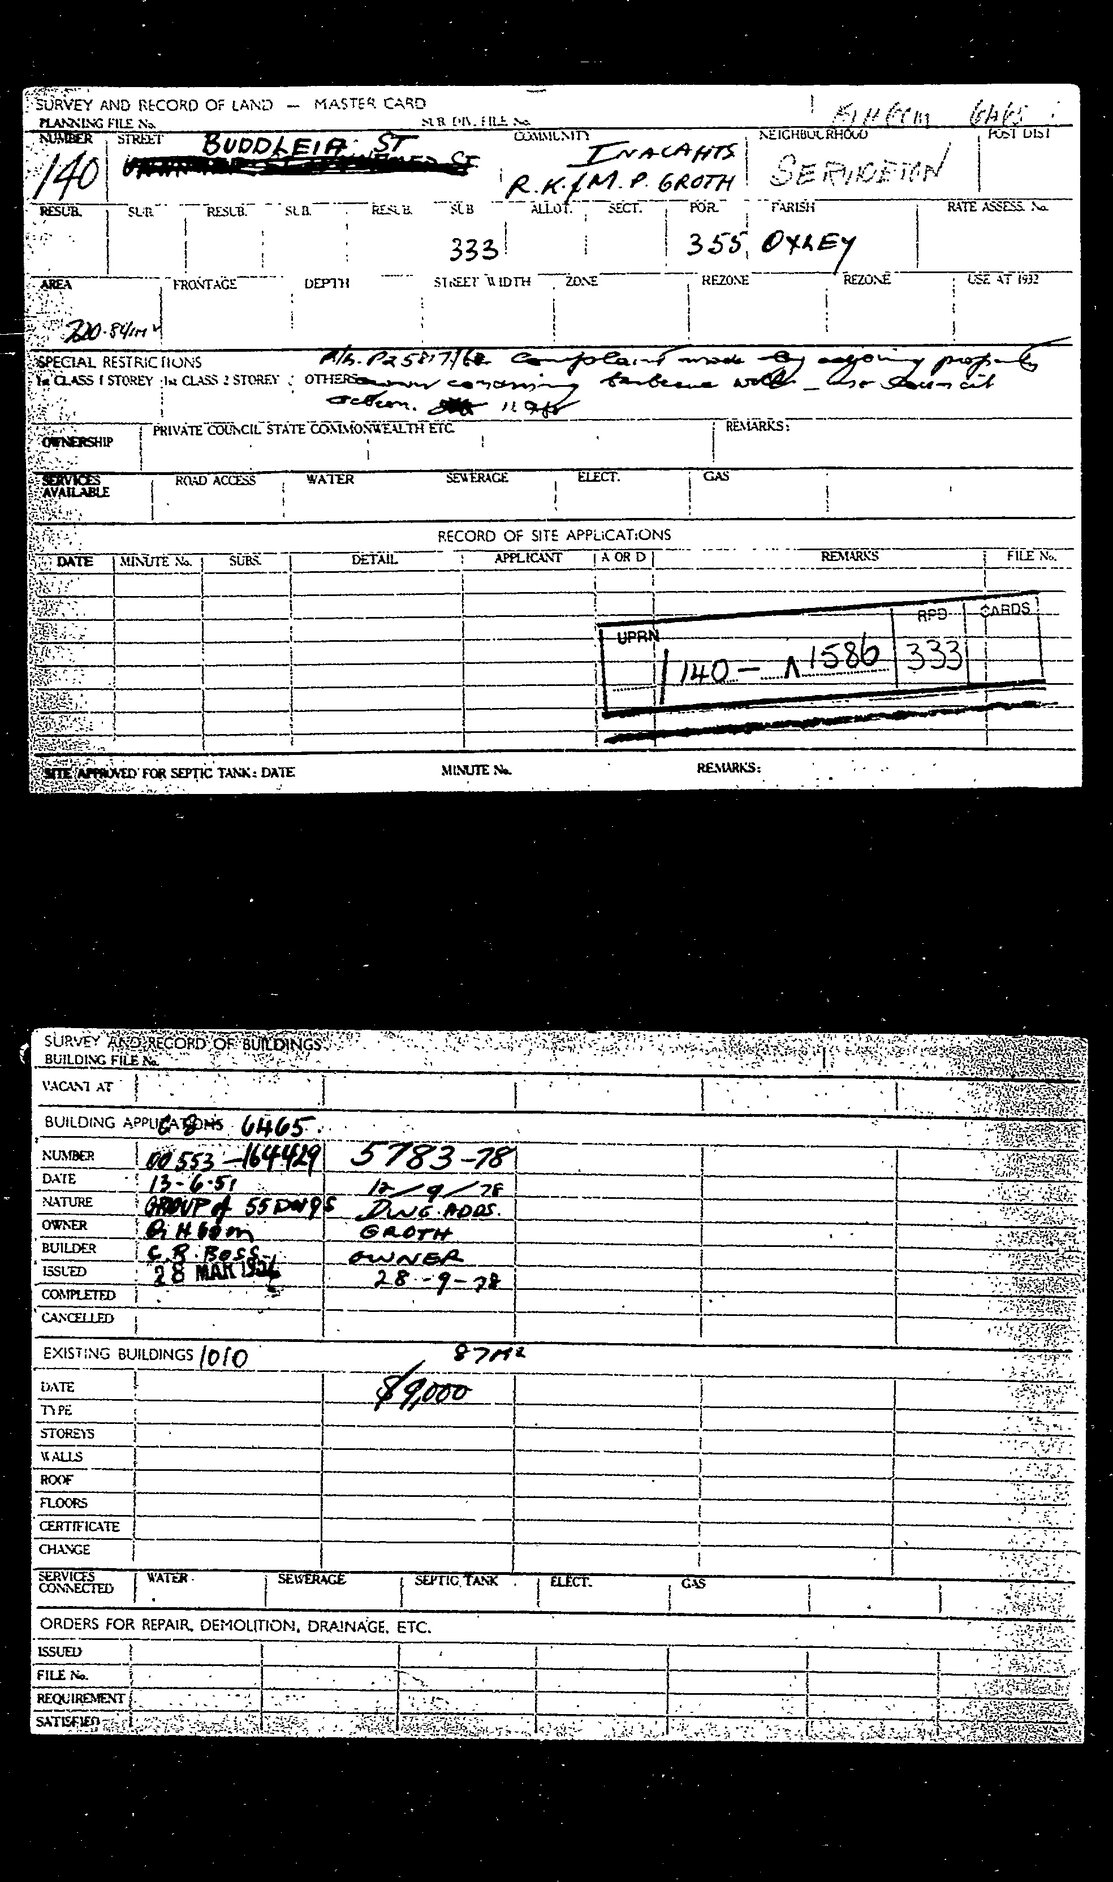 SURVEY AND RECORD OF LAND — MASTER CARD
PLANNING FILE No. SUB DIV. FILE No. 6465
NUMBER STREET COMMUNITY NEIGHBOURHOOD POST DIST
140 BUDDLEIA ST INALAHTS SERVICETON
R.K. & M.P. GROTH
RESUB. SUB. RESUB. SUB. RESUB. SUB ALLOT. SECT. POR. PARISH RATE ASSESS. No.
333 355 OXLEY
AREA FRONTAGE DEPTH STREET WIDTH ZONE REZONE REZONE USE AT 1932
720.84m²
SPECIAL RESTRICTIONS Complaint made by adjoining property
1st CLASS 1 STOREY 1st CLASS 2 STOREY OTHERS owner concerning barbecue walls - no council
action.
OWNERSHIP PRIVATE COUNCIL STATE COMMONWEALTH ETC. REMARKS:
SERVICES AVAILABLE ROAD ACCESS WATER SEWERAGE ELECT. GAS
RECORD OF SITE APPLICATIONS
DATE MINUTE No. SUBS. DETAIL APPLICANT A OR D REMARKS FILE No.
UPRN RPD CARDS
140 — A 1586 333
SITE APPROVED FOR SEPTIC TANK: DATE MINUTE No. REMARKS:
SURVEY AND RECORD OF BUILDINGS
BUILDING FILE No.
VACANT AT
BUILDING APPLICATIONS 6465
NUMBER DO 553-164429 5783-78
DATE 13-6-51 12/9/78
NATURE GROUP of 55 DWGS DWG ADDS.
OWNER Q H Com GROTH
BUILDER C.R. BOSS OWNER
ISSUED 28 MAR 28-9-78
COMPLETED
CANCELLED
EXISTING BUILDINGS 1010 87M²
DATE $9,000
TYPE
STOREYS
WALLS
ROOF
FLOORS
CERTIFICATE
CHANGE
SERVICES CONNECTED WATER SEWERAGE SEPTIC TANK ELECT. GAS
ORDERS FOR REPAIR, DEMOLITION, DRAINAGE, ETC.
ISSUED
FILE No.
REQUIREMENT
SATISFIED